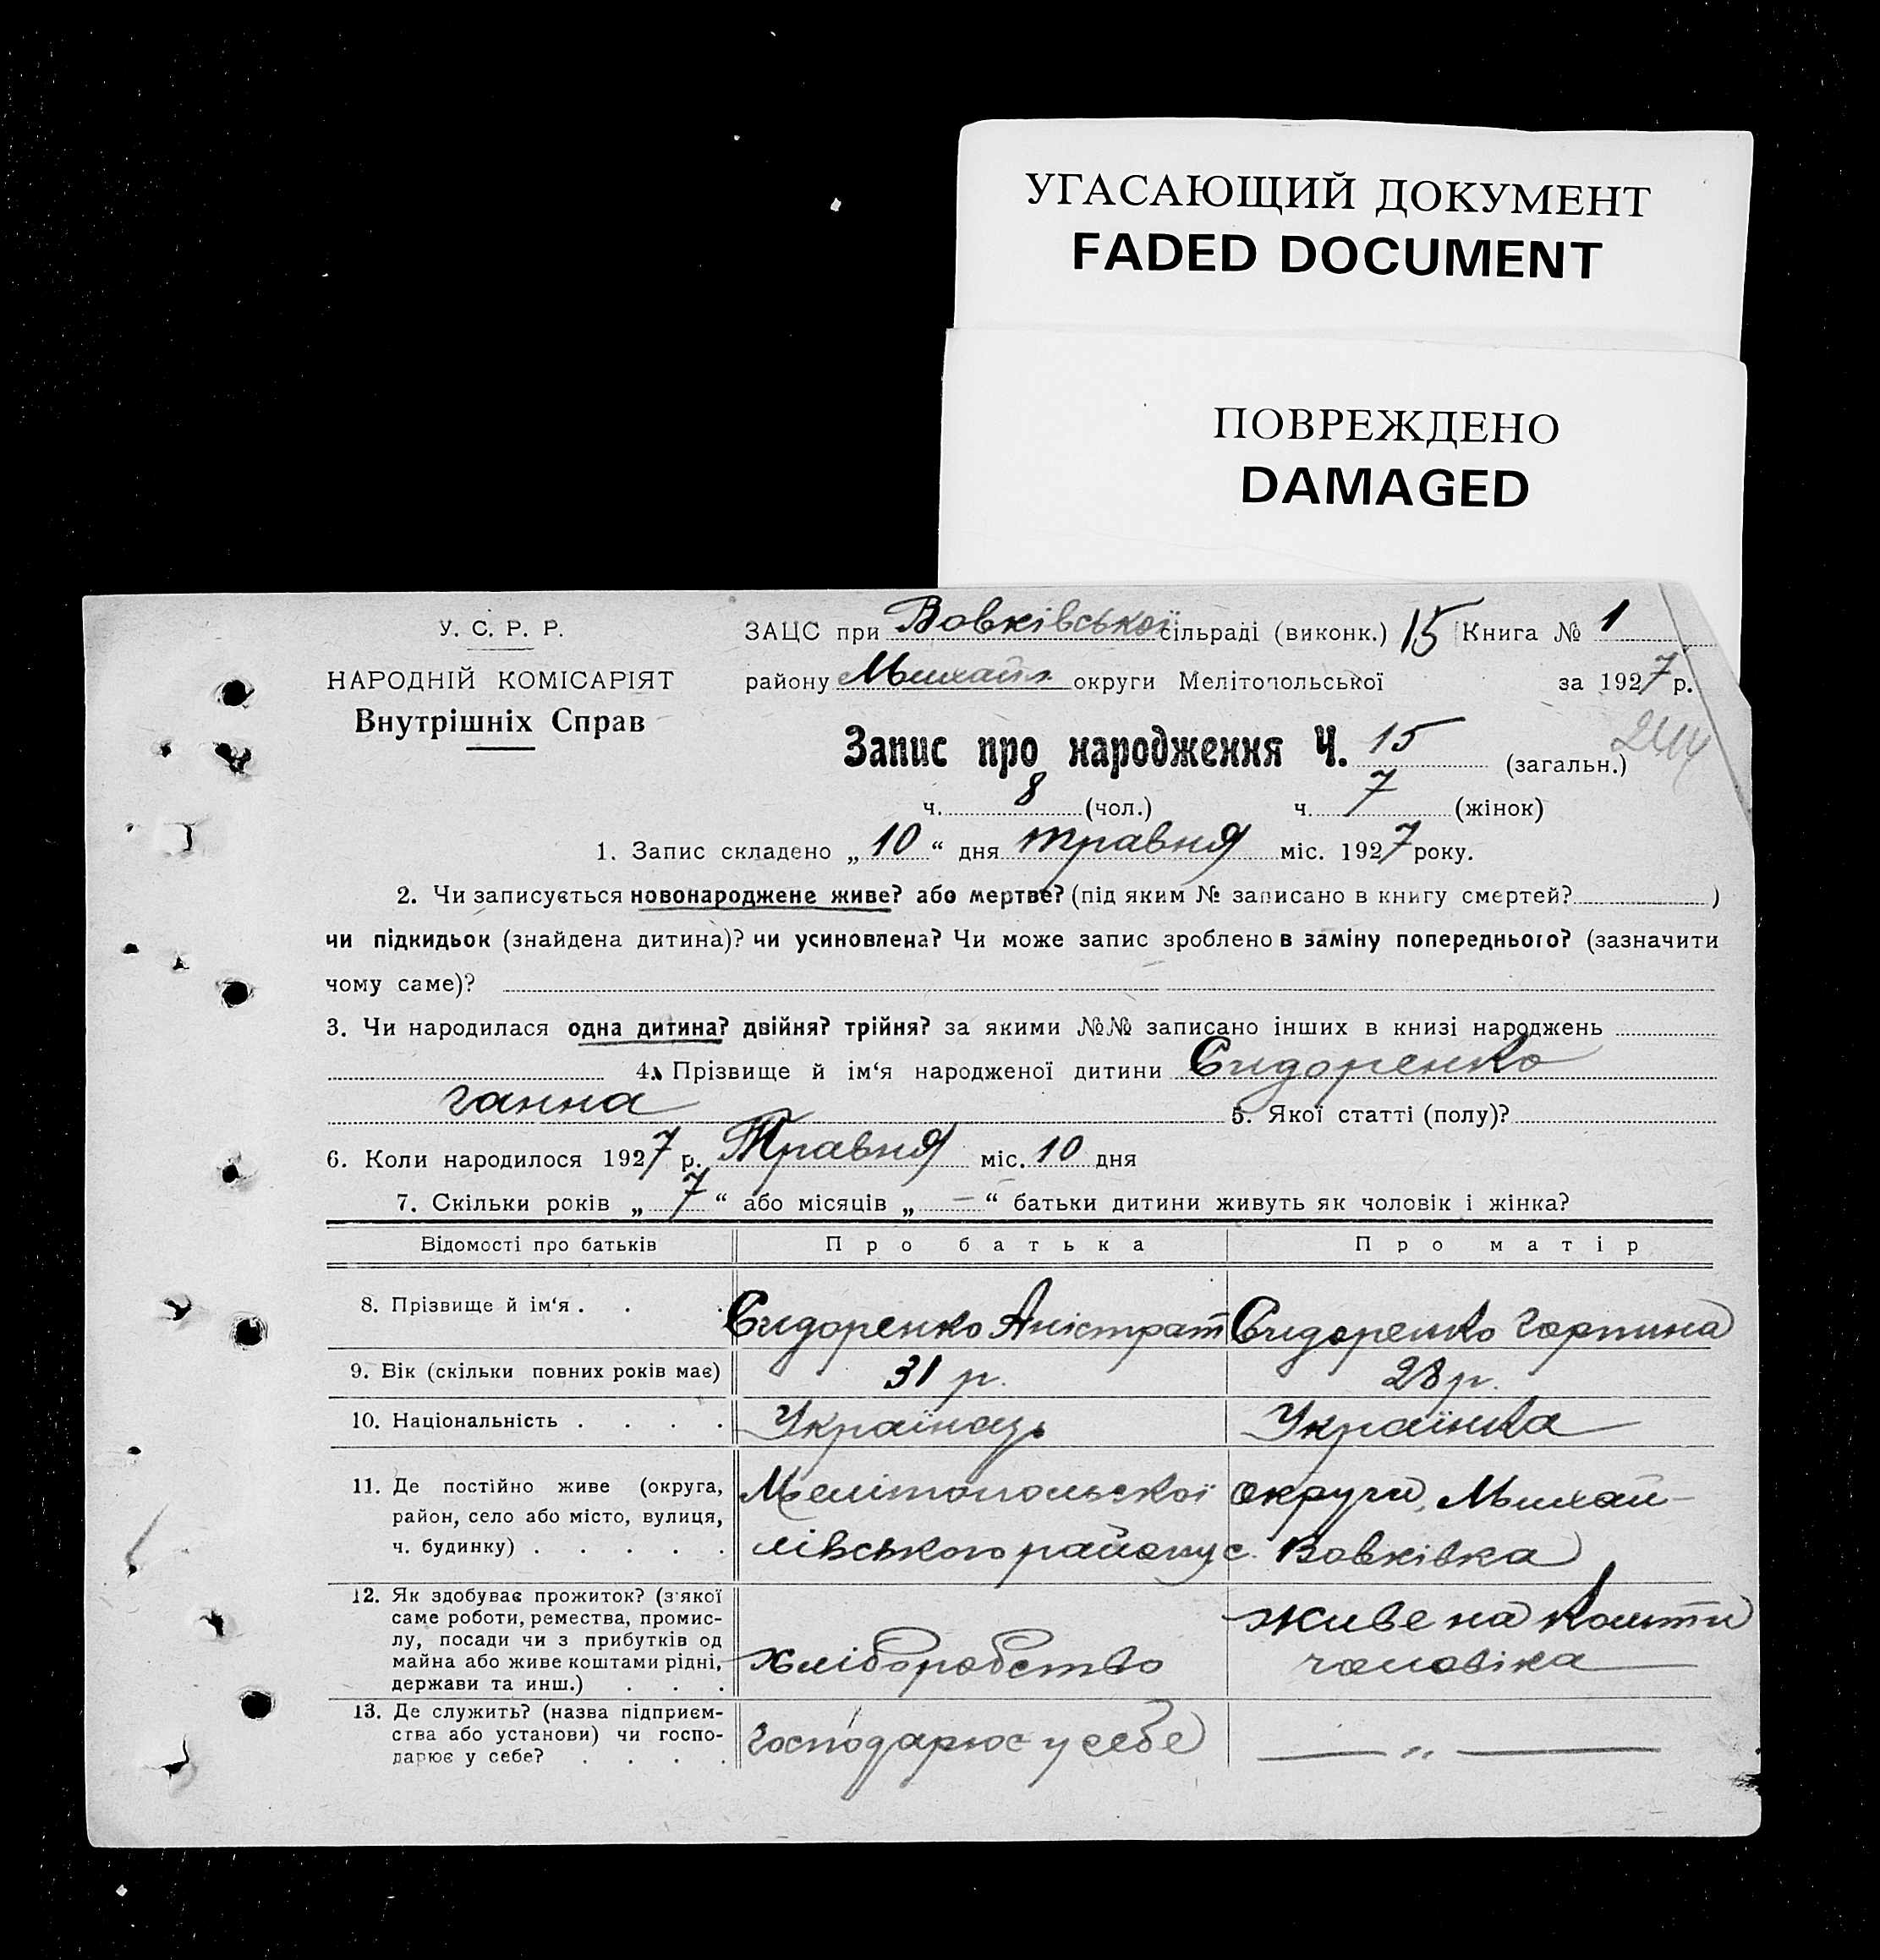 УГАСАЮЩИЙ ДОКУМЕНТ
FADED DOCUMENT
ПОВРЕЖДЕНО
DAMAGED
У. С. Р. Р.
НАРОДНІЙ КОМІСАРІЯТ
Внутрішніх Справ
ЗАЦС при Вовківської сільраді (виконк.) 15 Книга № 1
району Михайл. округи Мелітопольської за 1927 р.
Запис про народження Ч. 15 (загальн.)
ч. 8 (чол.) ч. 7 (жінок)
1. Запис складено „ 10 “ дня травня міс. 1927 року.
2. Чи записується новонароджене живе? або мертве? (під яким № записано в книгу смертей? )
чи підкидьок (знайдена дитина)? чи усиновлена? Чи може запис зроблено в заміну попереднього? (зазначити
чому саме)?
3. Чи народилася одна дитина? двійня? трійня? за якими №№ записано інших в книзі народжень
4. Прізвище й ім‘я народженої дитини Сидоренко
Ганна 5. Якої статті (полу)?
6. Коли народилося 1927 р. Травня міс. 10 дня
7. Скільки років „ 7 “ або місяців „ — “ батьки дитини живуть як чоловік і жінка?
Відомості про батьків Про батька Про матір
8. Прізвище й ім‘я . . . Сидоренко Аністрат Сидоренко Горпина
9. Вік (скільки повних років має) 31 р. 28 р.
10. Національність . . . . Українець Українка
11. Де постійно живе (округа, район, село або місто, вулиця, ч. будинку) . . . . . Мелітопольської округи, Михай-
лівського району с. Вовківка
12. Як здобуває прожиток? (з якої
саме роботи, ремества, промис-
лу, посади чи з прибутків од
майна або живе коштами рідні,
держави та инш.) . . . Хліборобство живе на кошти
чоловіка
13. Де служить? (назва підприєм-
ства або установи) чи госпо-
дарює у себе? . . . . Господарює у себе — „ —